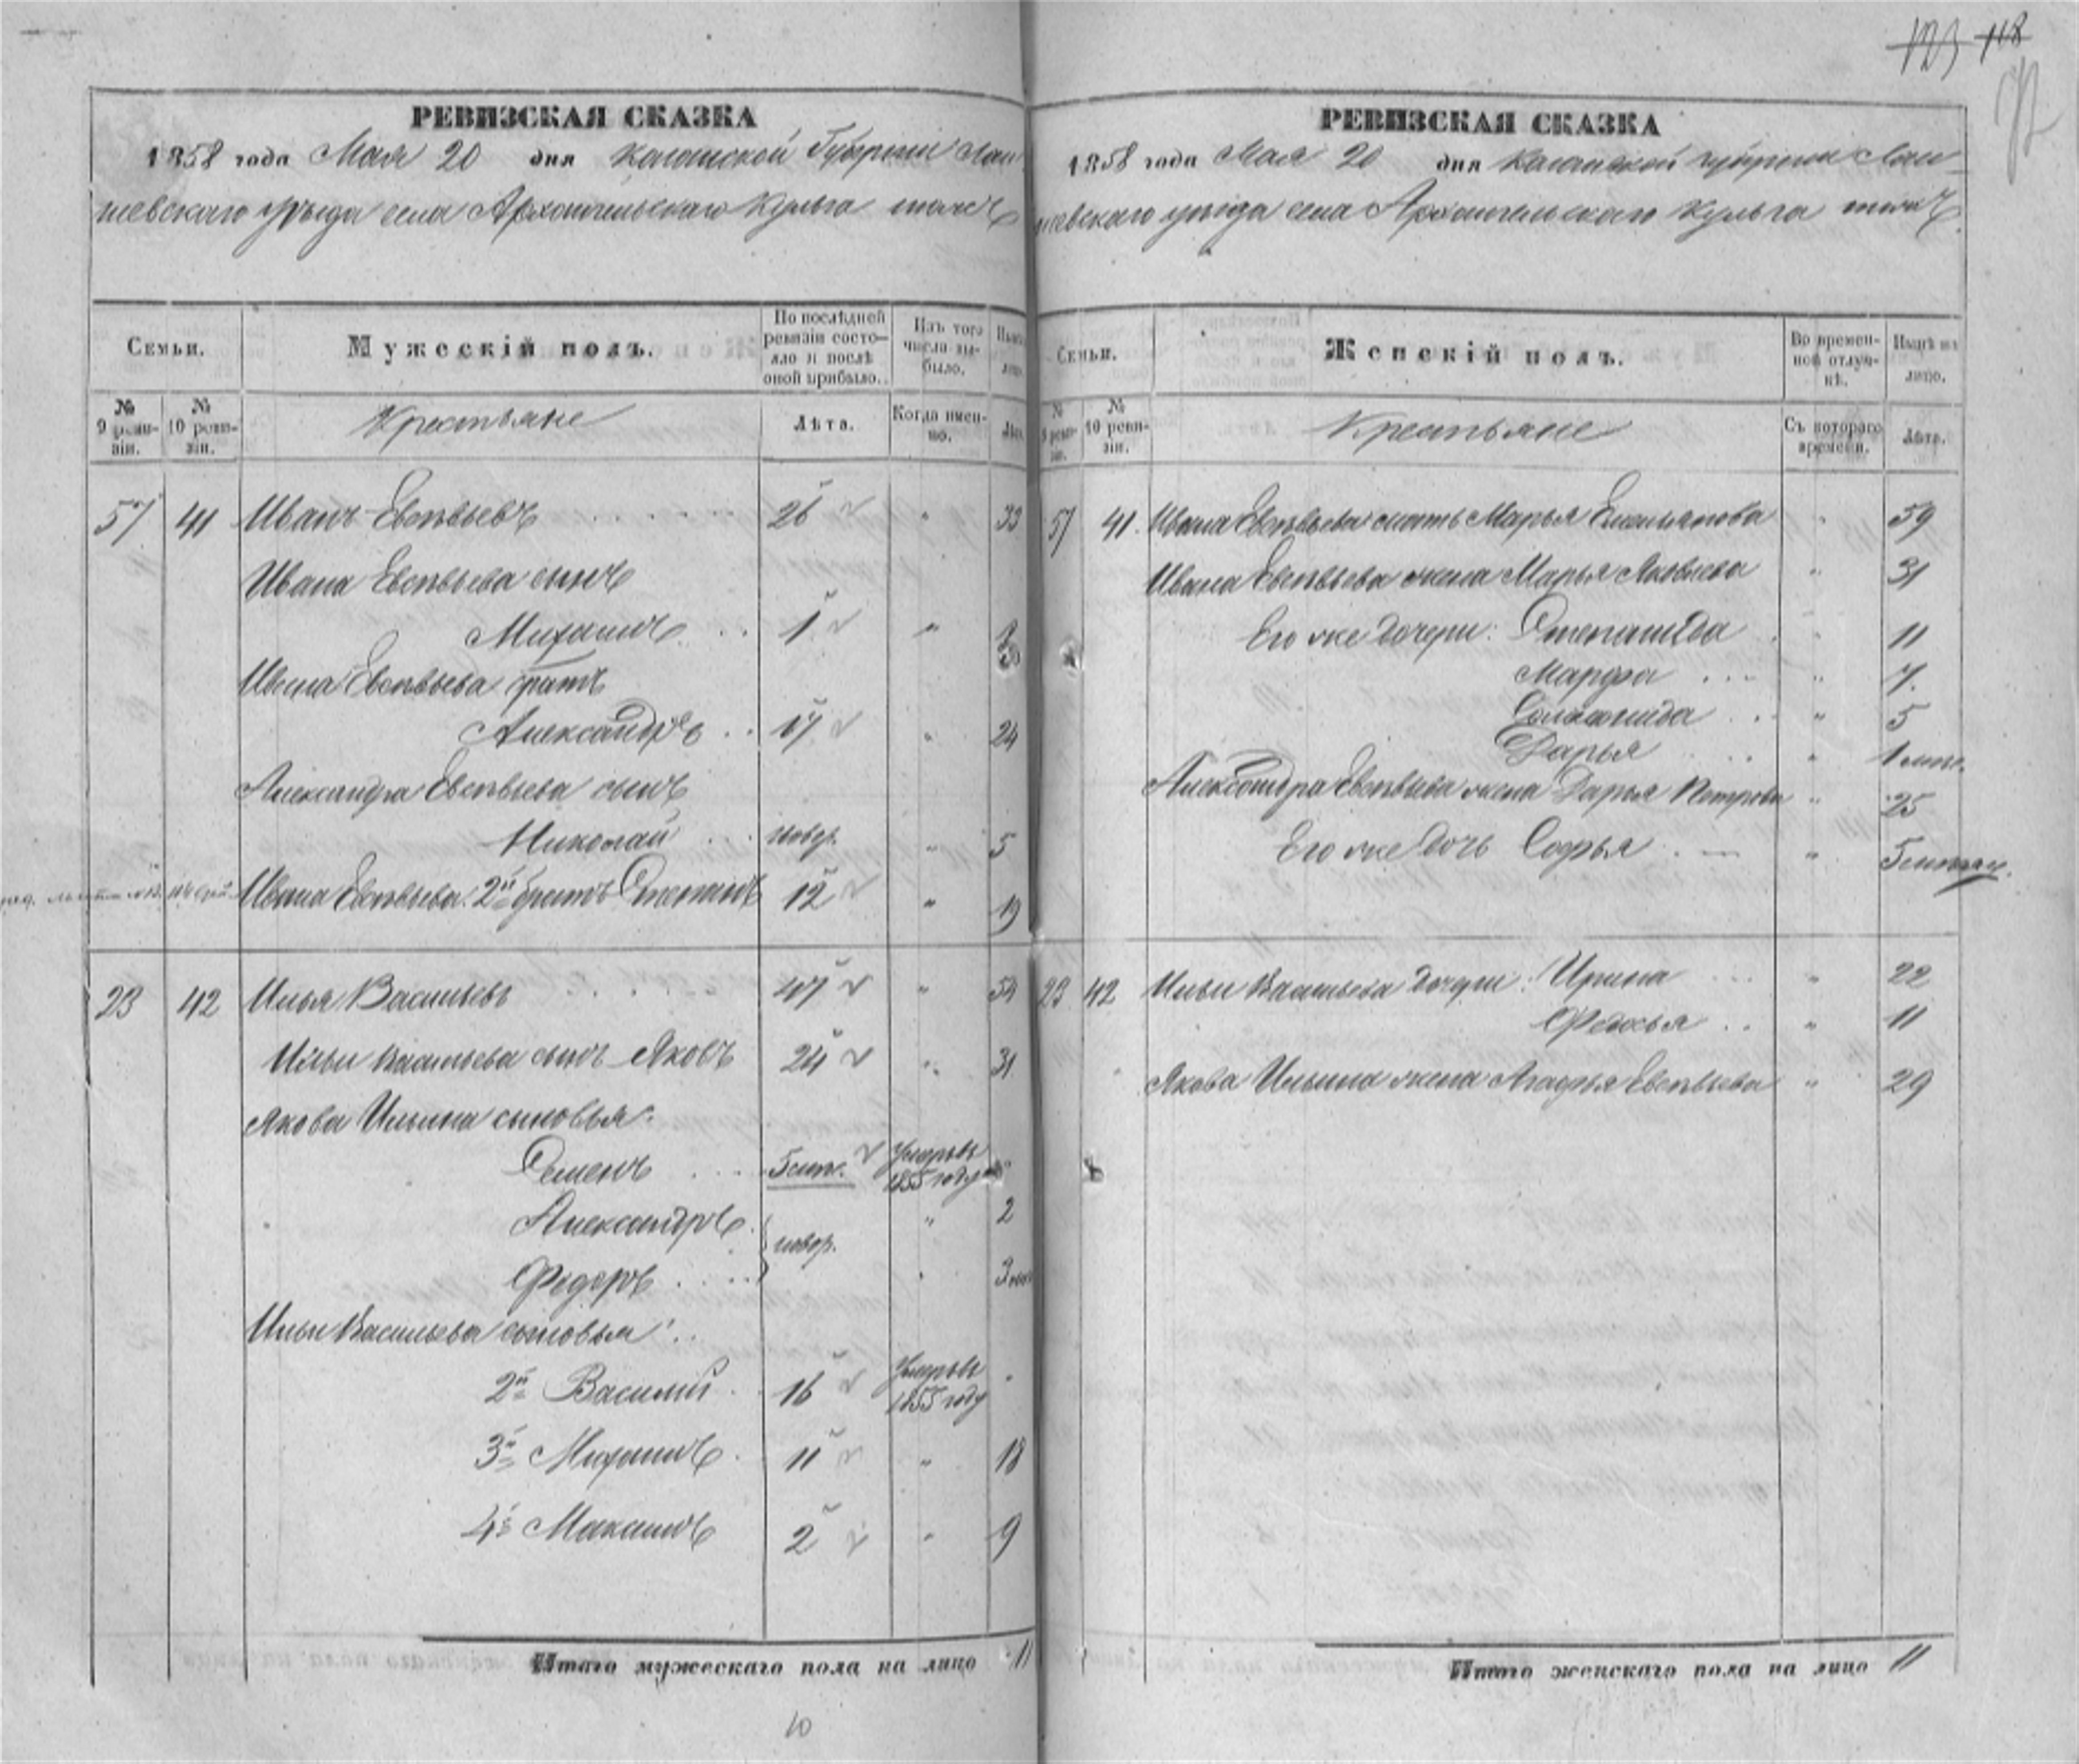 123 118
РЕВИЗСКАЯ СКАЗКА
1858 года Мая 20 дня Казанской Губернии Лаи
шевскаго уѣзда села Архангельскаго Кульга тожъ
Семьи.
№ 9 реви-
зіи.
№ 10 реви-
зіи.
Мужескій полъ.
Крестьяне
По послѣдней
ревизіи состо-
яло и послѣ
оной прибыло.
Лѣта.
Изъ того
числа вы-
было.
Когда имен-
но.
57 41 Иванъ Евсѣвьевъ 26 " 33
Ивана Евсѣвьева сынъ
Михаилъ 1 "
Ивана Евсѣвьева братъ
Александръ 17 " 24
Александра Евсѣвьева сынъ
Николай новор. " 5
Ивана Евсѣвьева 2й братъ Степанъ 12 " 19
23 42 Илья Васильевъ 47 " 54
Ильи Васильева сынъ Яковъ 24 " 31
Якова Ильина сыновья:
Семенъ 5 мѣс. Умеръ въ
1855 году
Александръ " 2
новор.
Федоръ " 3 мѣс
Ильи Васильева сыновья:
2й Василий 16 Умеръ въ
1855 году "
3й Михаилъ 11 " 18
4й Макаилъ 2 " 9
Итого мужескаго пола на лицо 11
10
РЕВИЗСКАЯ СКАЗКА
1858 года Мая 20 дня Казанской губернии Лаи
шевскаго уѣзда села Архангельскаго Кульга тожъ
Семьи.
№ 9 реви-
зіи.
№ 10 реви-
зіи.
Женскій полъ.
Крестьяне
Во времен-
ной отлуч-
кѣ.
Съ котораго
времени.
Нынѣ на
лицо.
Лѣта.
57 41. Ивана Евсѣвьева мать Марья Емельянова " 59
Ивана Евсѣвьева жена Марья Яковлева " 31
Его же дочери: Степанида " 11
Марфа " 7.
Соломонида " 5
Дарья " 1 мѣс.
Александра Евсѣвьева жена Дарья Петрова " 25
Его же дочь Софья " 5 мѣсяц.
23 42 Ильи Васильева дочери: Ирина " 22
Федосья " 11
Якова Ильина жена Агафья Евсѣвьева " 29
Итого женскаго пола на лицо 11